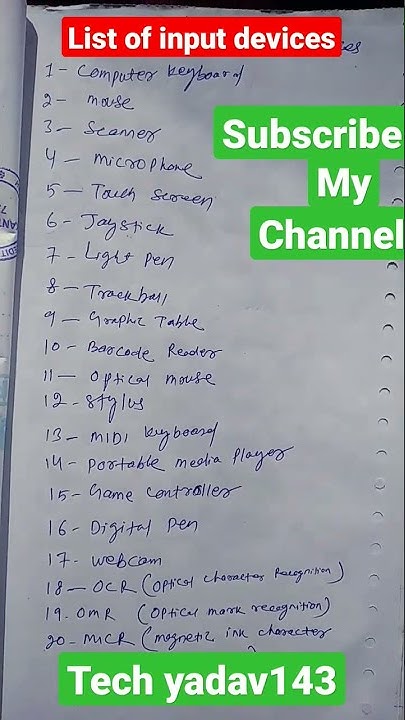 List of input devices
1- Computer keyboard
2- mouse
3- Scanner
Subscribe
My
Channel
4- microphone
5- Touch screen
6- Joystick
7- Light pen
8- Trackball
9- Graphic Table
10- Barcode Reader
11- Optical mouse
12- Stylus
13- MIDI keyboard
14- Portable media Player
15- Game Controller
16- Digital pen
17- webcam
18- OCR (Optical character Recognition)
19- OMR (Optical mark recognition)
20- MICR (magnetic ink character
Tech yadav143